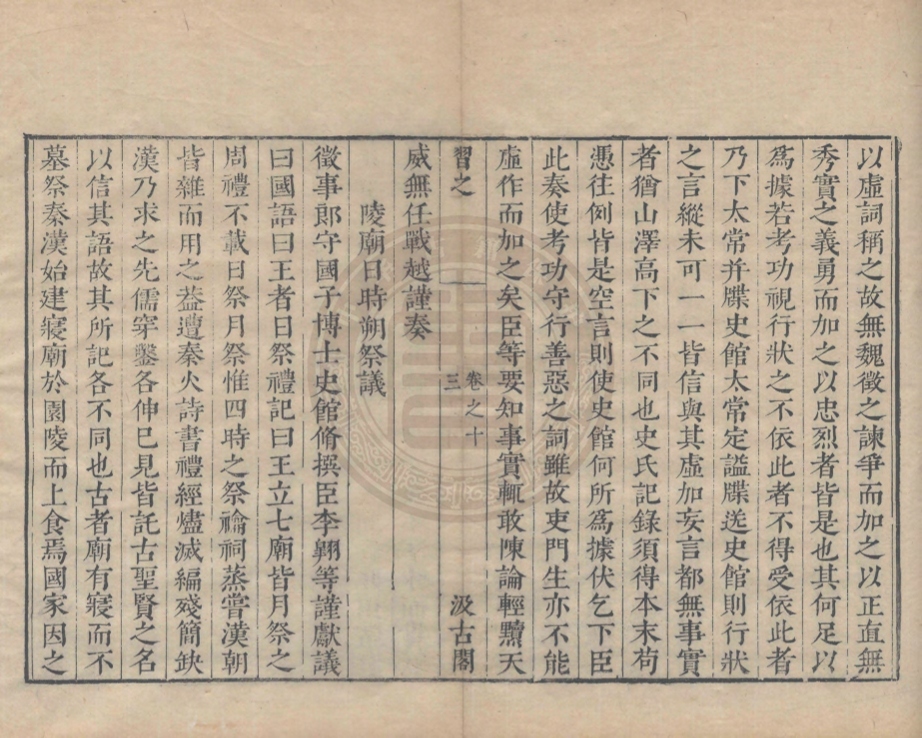 以虛詞稱之故無魏徵之諫爭而加之以正直無
秀實之義勇而加之以忠烈者皆是也其何足以
爲據若考功視行狀之不依此者不得受依此者
乃下太常并牒史館太常定謚牒送史館則行狀
之言縱未可一一皆信與其虛加妄言都無事實
者猶山澤高下之不同也史氏記錄須得本末苟
憑往例皆是空言則使史館何所爲據伏乞下臣
此奏使考功守行善惡之詞雖故吏門生亦不能
虛作而加之矣臣等要知事實輒敢陳論輕黷天
習之
卷之十
三
汲古閣
威無任戰越謹奏
陵廟日時朔祭議
徵事郎守國子博士史館脩撰臣李翱等謹獻議
曰國語曰王者日祭禮記曰王立七廟皆月祭之
周禮不載日祭月祭惟四時之祭禴祠蒸嘗漢朝
皆雜而用之葢遭秦火詩書禮經燼滅編殘簡缺
漢乃求之先儒穿鑿各伸已見皆託古聖賢之名
以信其語故其所記各不同也古者廟有寢而不
墓祭秦漢始建寢廟於園陵而上食焉國家因之